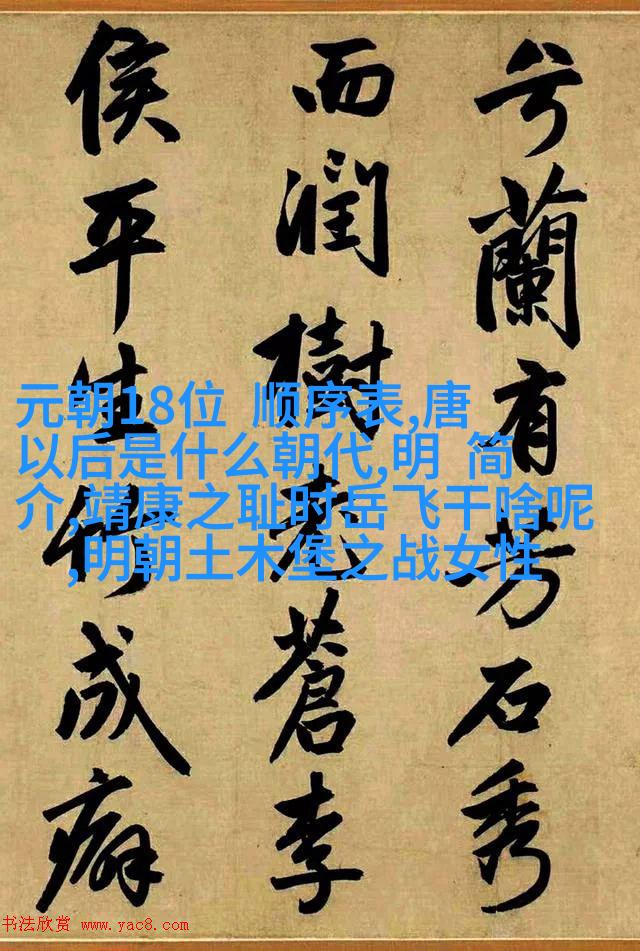 兮蘭有芳石秀
而潤樹老蒼李
侯平生竹成癖
元朝18位 顺序表,唐
以后是什么朝代,明 简
介,靖康之耻时岳飞干啥呢
,明朝土木堡之战女性
书法欣赏 www.yac8.com